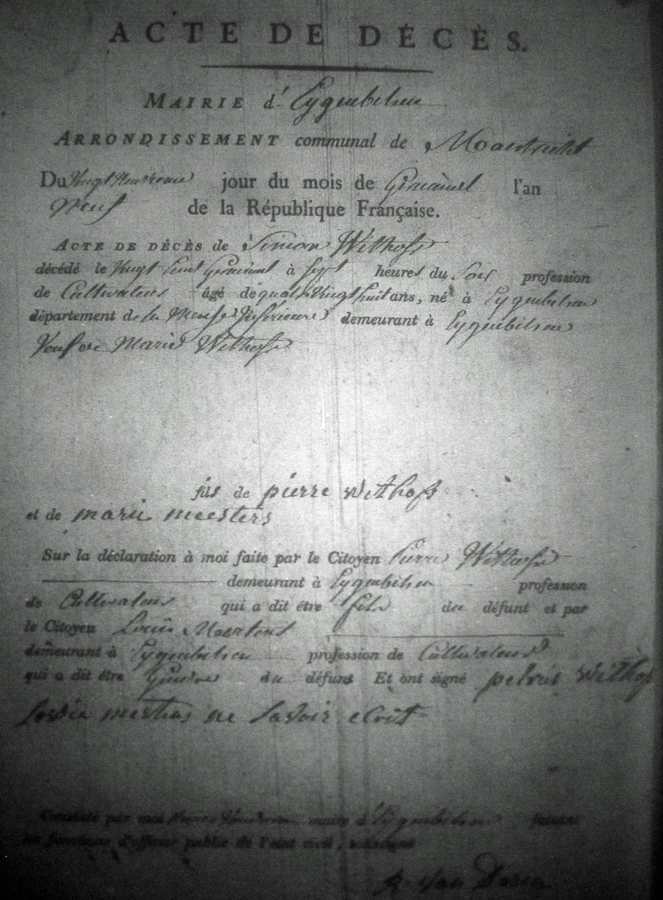 ACTE DE DÉCÈS.
MAIRIE d' Eygenbilsen
ARRONDISSEMENT communal de Maestricht
Du Vingt neuvieme jour du mois de Germinal l'an
Neuf de la République Française.
ACTE DE DÉCÈS de Simon Withofs
décédé le Vingt huit Germinal à Sept heures du Soir profession
de Cultivateur âgé de quatre Vingt huit ans, né à Eygenbilsen
département de la Meuse Inférieure demeurant à Eygenbilsen
Marie Withofs
fils de pierre withofs
et de marie meesters
Sur la déclaration à moi faite par le Citoyen Pierre Withofs
demeurant à Eygenbilsen profession
de Cultivateur qui a dit être fils du défunt et par
le Citoyen Louis Maertens
demeurant à Eygenbilsen profession de Cultivateur
qui a dit être Gendre du défunt Et ont signé petrus withofs
ne Savoir
Constaté par moi maire d'Eygenbilsen faisant
les fonctions d'officier public de l'état civil, soussigné